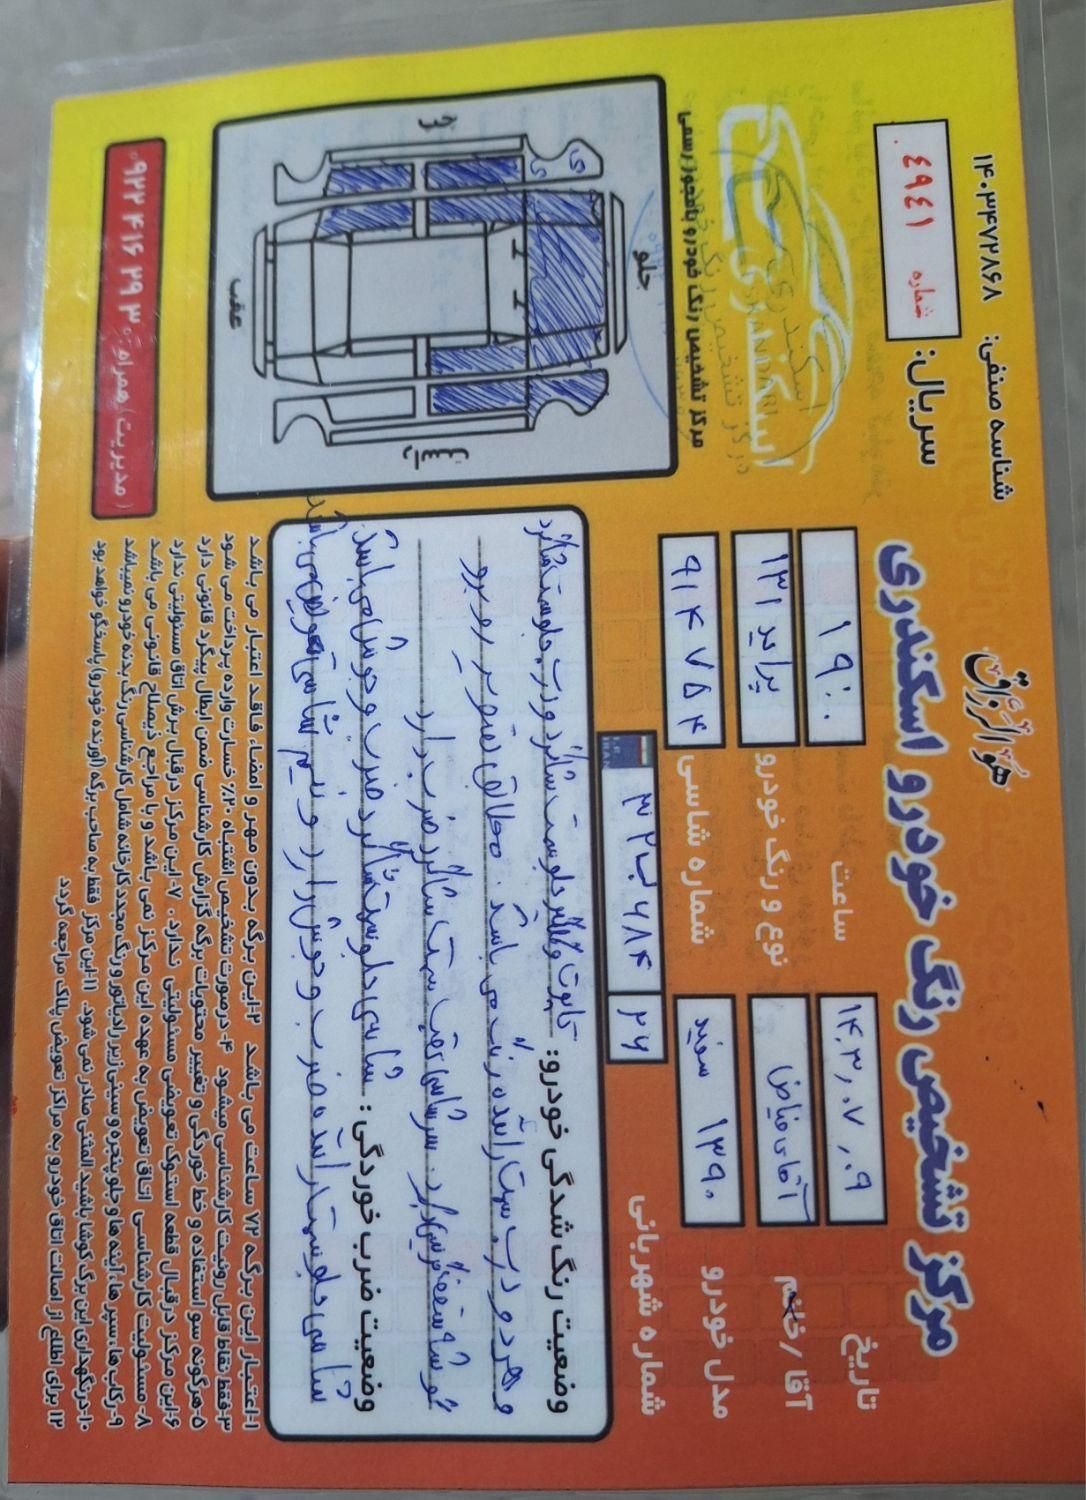 هوالرزاق
شناسه صنفی: ۱۴۰۳۴۷۲۸۶۸
مرکز تشخیص رنگ خودرو اسکندری
سریال:
شماره ٤٩٤١
اسکندری
ESKANDARI
مرکز تشخیص رنگ خودرو با مجوز رسمی
تاریخ ۱۴۰۳,۰۷,۰۹
ساعت ۱۹:۰۰
آقا/خانم آقای فیاض
نوع و رنگ خودرو پراید ۱۳۱
مدل خودرو ۱۳۹۰ سفید
شماره شاسی ۹۱۴۷۵۴
شماره شهربانی ۲۶ ۳۲ب۶۸۴
وضعیت رنگ شدگی خودرو: کاپوت وگلگیر جلو سمت شاگرد ودرب جلو سمت شاگرد
و هر دو درب سمت راننده رنگ می باشد. مطابق تصویر روبرو
سرشاسی عقب سمت شاگرد ضرب دارد
وضعیت ضرب خوردگی: شاسی جلو سمت شاگرد ضرب وجوش می باشد
شاسی جلو سمت راننده ضرب و جوش دارد و سینی
جلو
عقب
۱-اعتبار این برگه ۷۲ ساعت می باشد ۲-این برگه بدون مهر و امضاء فاقد اعتبار می باشد
۳-فقط نقاط قابل رویت کارشناسی میشود ۴-درصورت تشخیص اشتباه ۲۰٪ خسارت وارده پرداخت می شود
۵-هرگونه سو استفاده و خط خوردگی و تغییر محتویات برگه گزارش کارشناسی ضمن ابطال پیگرد قانونی دارد
۶-این مرکز در قبال قطعه استوک تعویضی مسئولیتی ندارد. ۷-این مرکز در قبال برش اتاق مسئولیتی ندارد
۸-مسئولیت کارشناسی اتاق تعویض به عهده این مرکز نمی باشد و با مراجع ذیصلاح قانونی می باشد
۹-رکاب ها، سپر ها، آینه ها و جلو پنجره و سینی زیر رادیاتور و رنگ مجدد کارخانه شامل کارشناسی رنگ بدنه خودرو نمیباشد
۱۰-درنگهداری این برگ کوشا باشید المثنی صادر نمی شود. ۱۱-این مرکز فقط به صاحب برگه (آورنده خودرو) پاسخگو خواهد بود
۱۲ برای اطلاع از اصالت اتاق خودرو به مراکز تعویض پلاک مراجعه گردد
(مدیریت) همراه: ۰۹۲۲ ۴۱۶ ۲۹ ۳۰